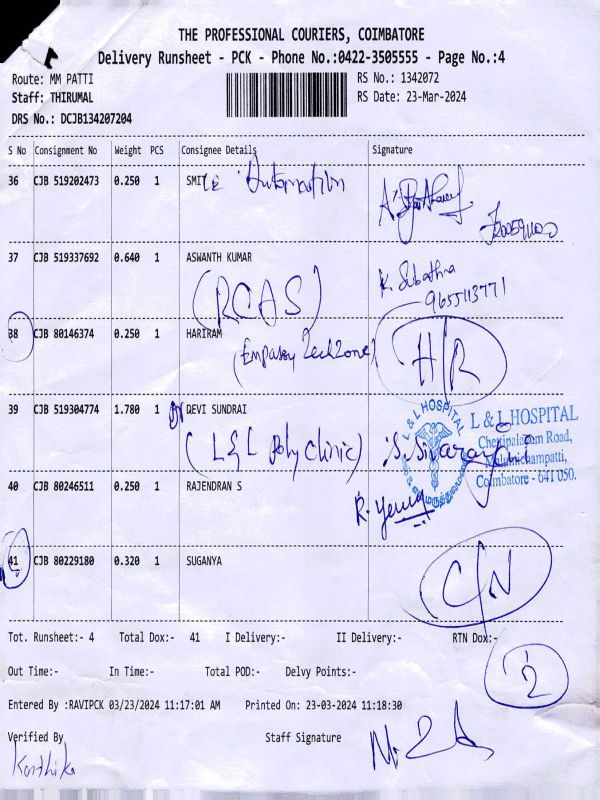 THE PROFESSIONAL COURIERS, COIMBATORE
Delivery Runsheet - PCK - Phone No.:0422-3505555 - Page No.:4
Route: MM PATTI RS No.: 1342072
Staff: THIRUMAL RS Date: 23-Mar-2024
DRS No.: DCJB134207204
S No Consignment No Weight PCS Consignee Details Signature
36 CJB 519202473 0.250 1 SMITE Automation
37 CJB 519337692 0.640 1 ASWANTH KUMAR K. Subathra
(RCAS) 9655113771
38 CJB 80146374 0.250 1 HARIRAM H/R
39 CJB 519304774 1.780 1 DEVI SUNDRAI
(L&L Poly Clinic)
L & L HOSPITAL
L & L HOSPITAL
Chettipalayam Road,
Malumichampatti,
Coimbatore - 641 050.
40 CJB 80246511 0.250 1 RAJENDRAN S
41 CJB 80229180 0.320 1 SUGANYA C/N
Tot. Runsheet:- 4 Total Dox:- 41 I Delivery:- II Delivery:- RTN Dox:-
2
Out Time:- In Time:- Total POD:- Delvy Points:-
Entered By :RAVIPCK 03/23/2024 11:17:01 AM Printed On: 23-03-2024 11:18:30
Verified By Staff Signature
Karthika